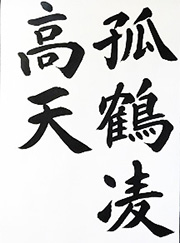 孤鶴凌
高天